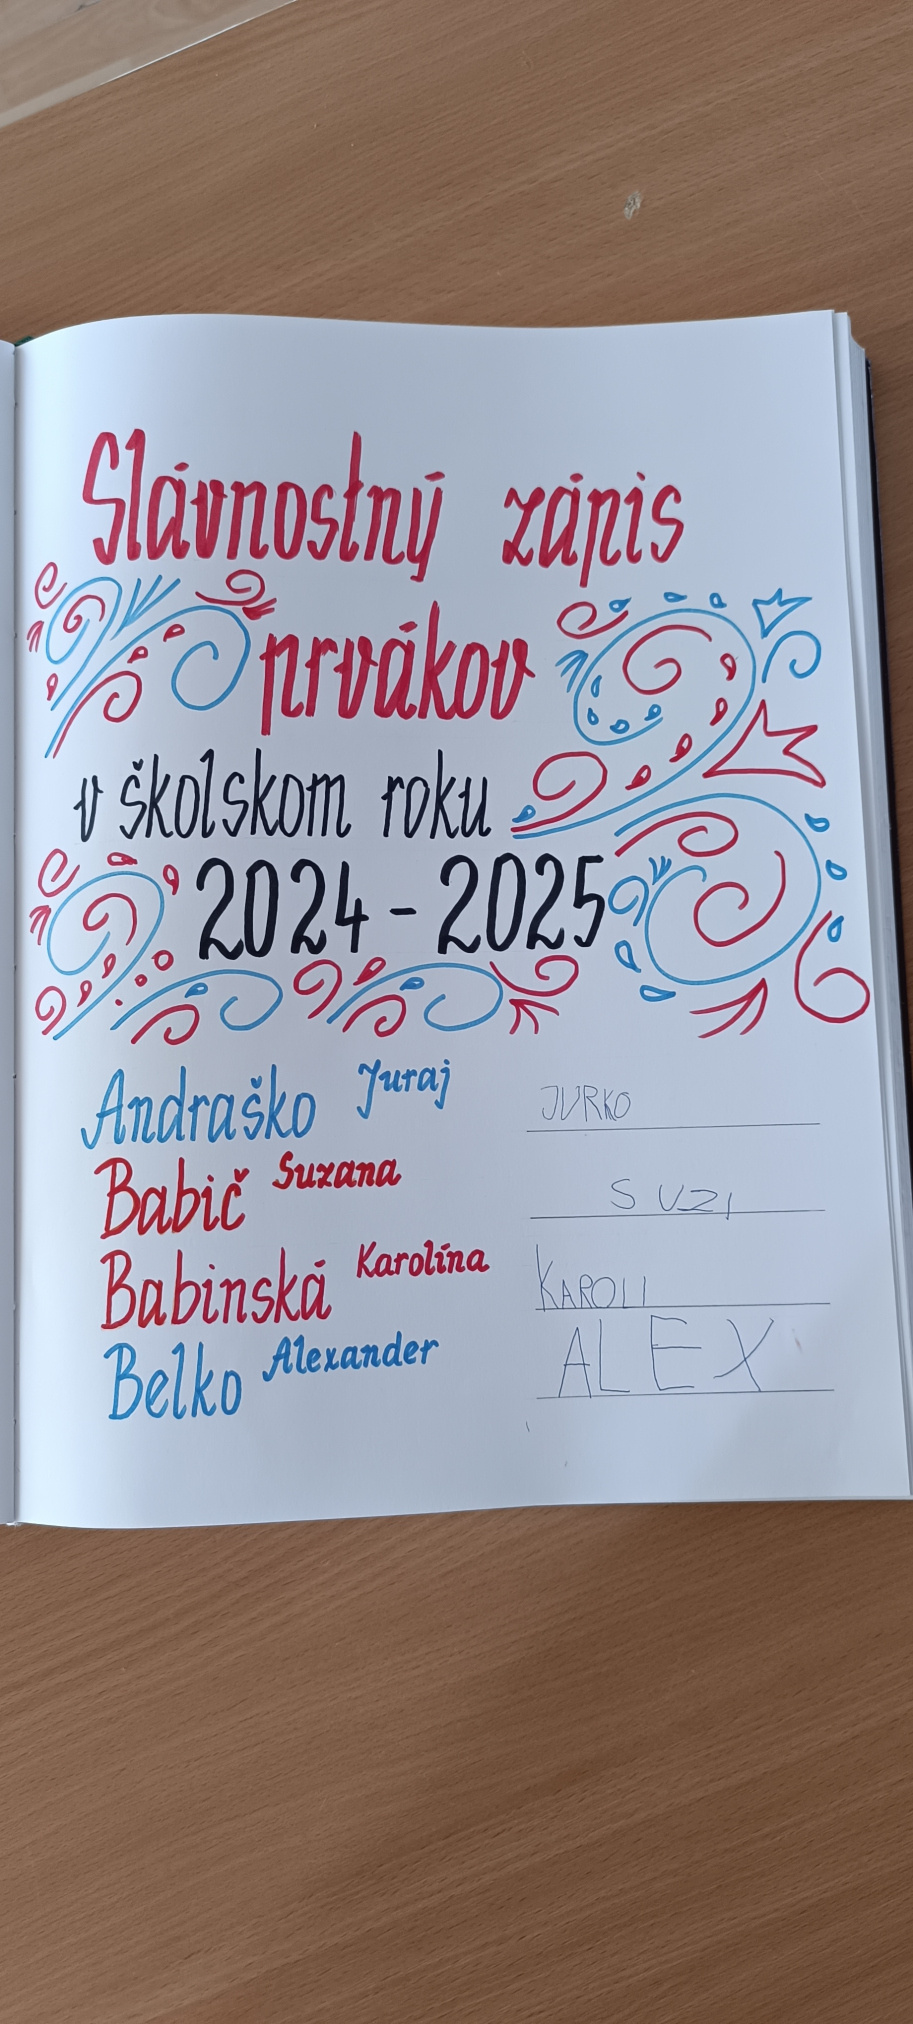 Slávnostný zápis
prvákov
v školskom roku
2024 - 2025
Andraško Juraj JURKO
Babič Suzana SUZI
Babinská Karolína KAROLI
Belko Alexander ALEX